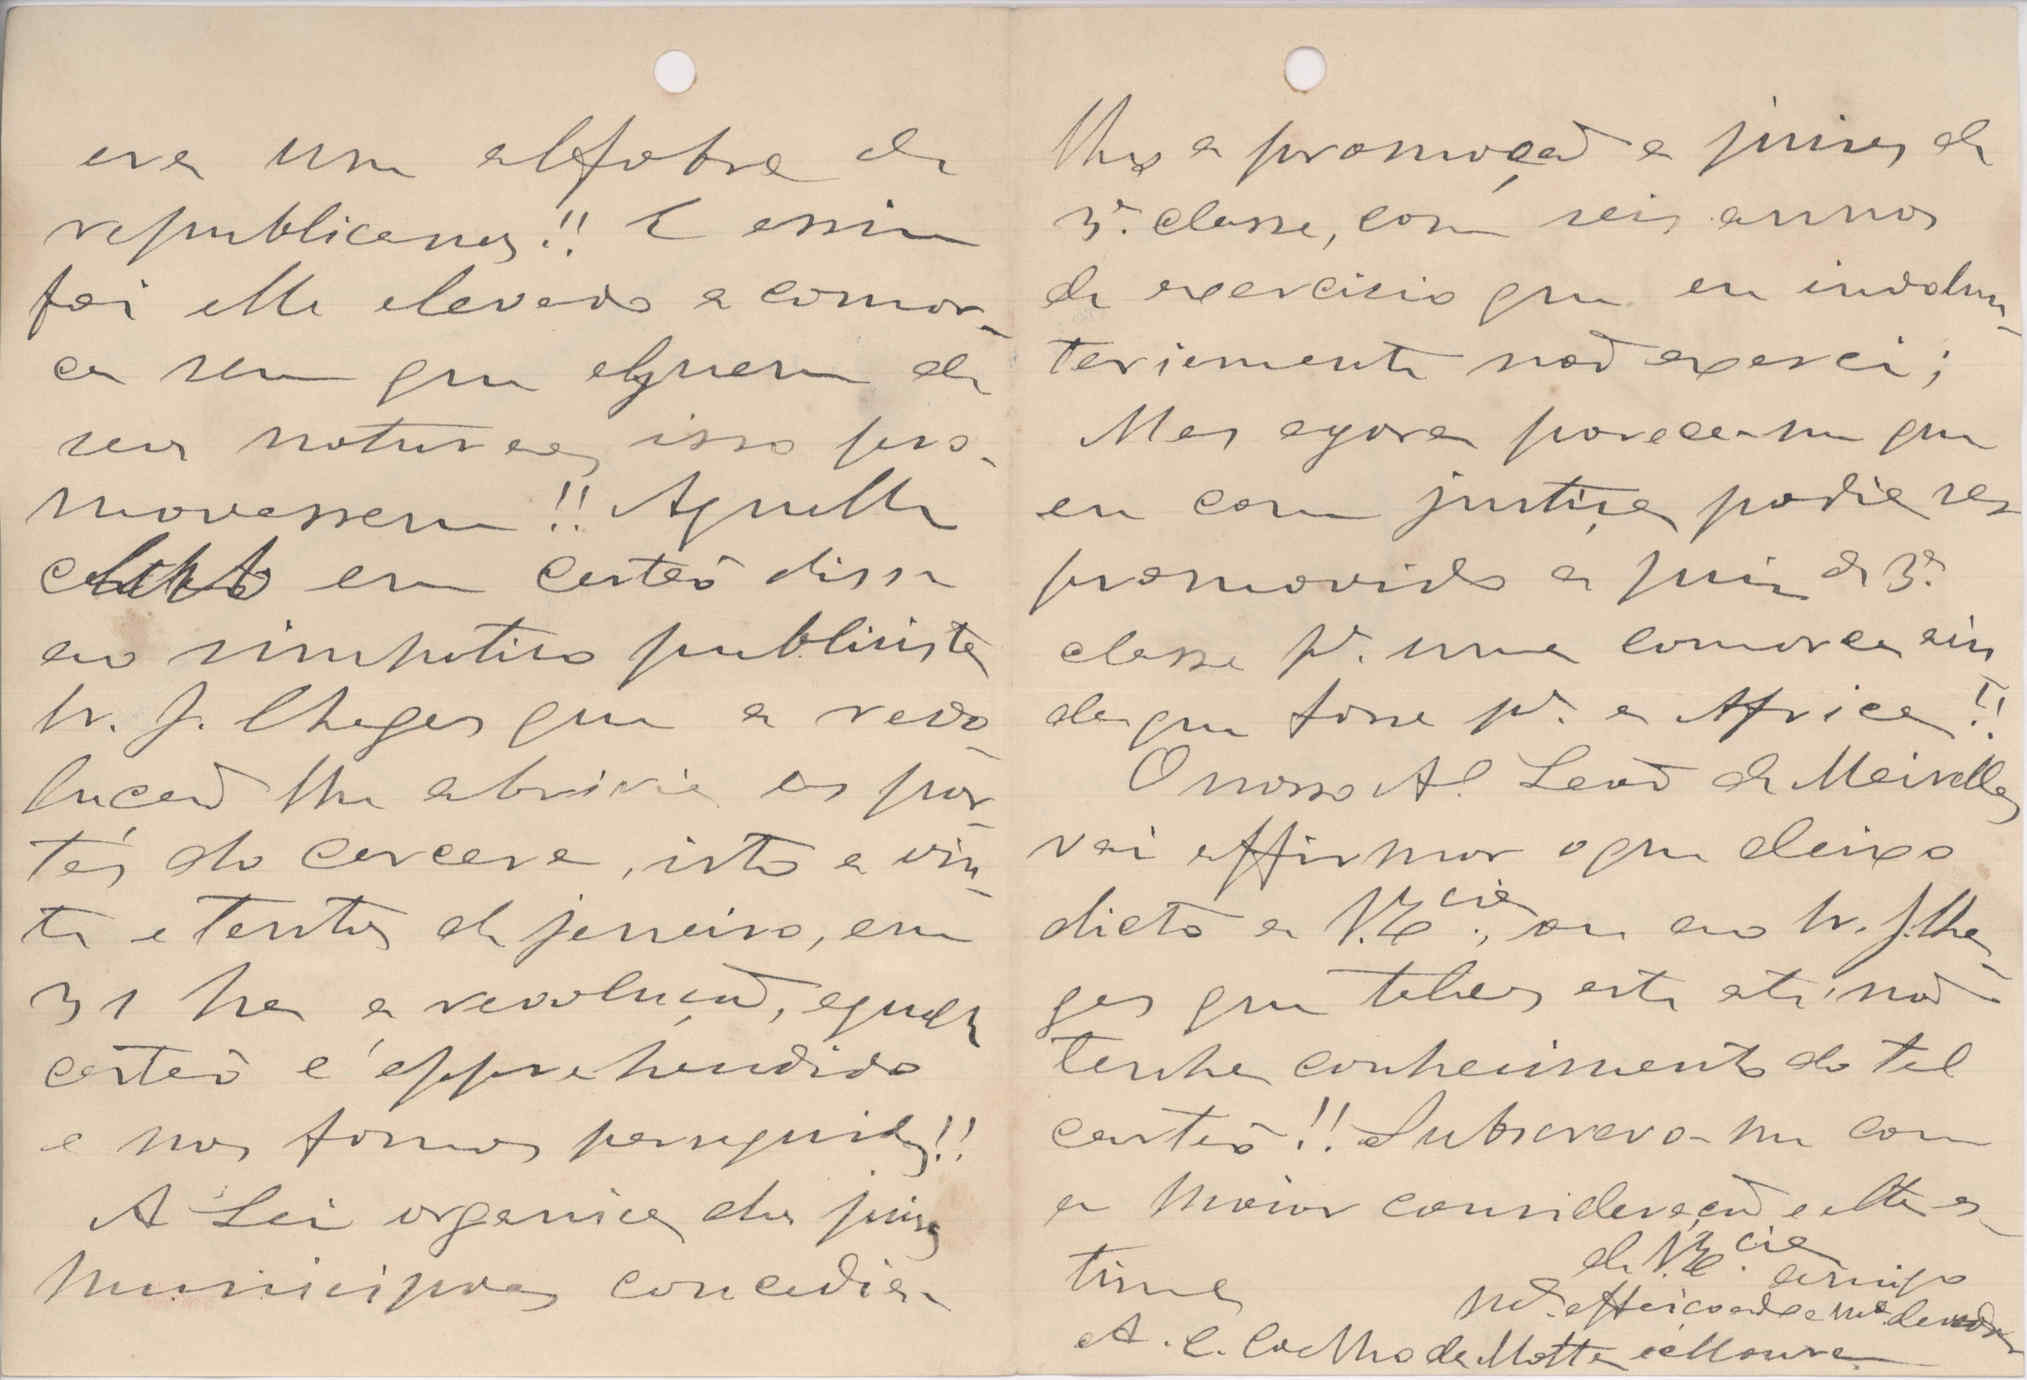 era um alfobre de
republicanos!! E assim
foi elle elevado a comar-
ca sem que alguem de
seus naturaes isso pro-
movessem!! Aquelle
em cartão disse
ao simpatico publicista
Sr. J. Chagas que a revo-
lução lhe abriria as por-
tas do carcere, isto a vin-
te e tantos de janeiro, em
31 ha a revolução, aquelle
cartão é apprehendido
e nos fomos perseguidos!!
A Lei organica dos juizes
municipaes concedia-
lhes a promoção a juizes de
3ª. classe, com seis annos
de exercicio que eu involun-
tariamente não exerci;
Mas agora parece-me que
eu com justiça podia ser
promovido a juiz de 3ª.
classe pª. uma comarca ain
da que fosse pª. a Africa!!
O nosso Al. Leão de Meirelles
vai affirmar o que deixo
dicto a V. Excia., ou ao Sr. J. Cha-
gas que talvez este até não
tenha conhecimento do tal
cartão!! Subscrevo-me com
a maior consideração e alta es-
tima
de V. Excia.
amigo
mtº. affeiçoado e mtº. devedor
A. C. Coelho da Motta e Moura